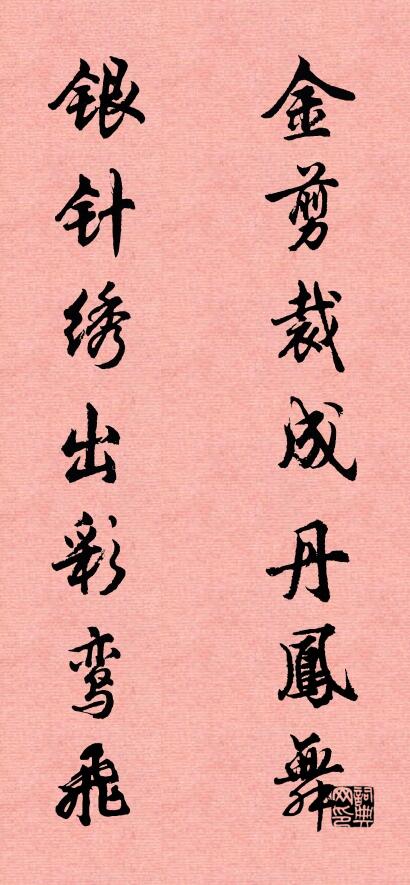 金剪裁成丹鳳舞
银针绣出彩鸾飛
詞典网印